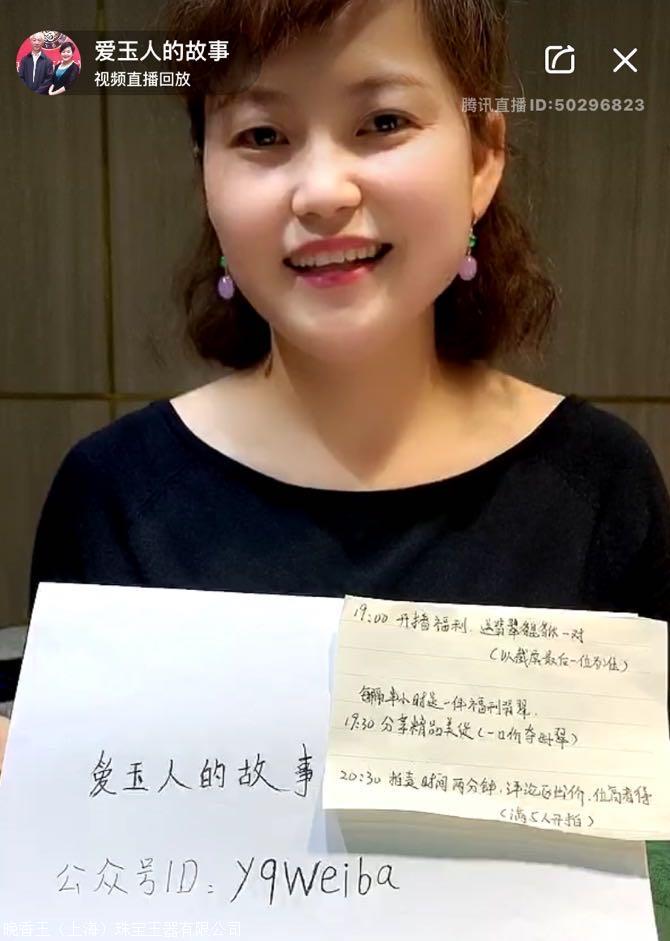 爱玉人的故事
视频直播回放
腾讯直播ID:50296823
19:00 开播福利.送翡翠貔貅一对
(以截屏最后一位为准)
每隔半小时送一件福利翡翠.
19:30 分享精品美货(一口价夺翡翠)
20:30 拍卖时间两分钟,评论区出价.位高者得
(满5人开拍)
爱玉人的故事
公众号ID: yqweiba
晚香玉（上海）珠宝玉器有限公司